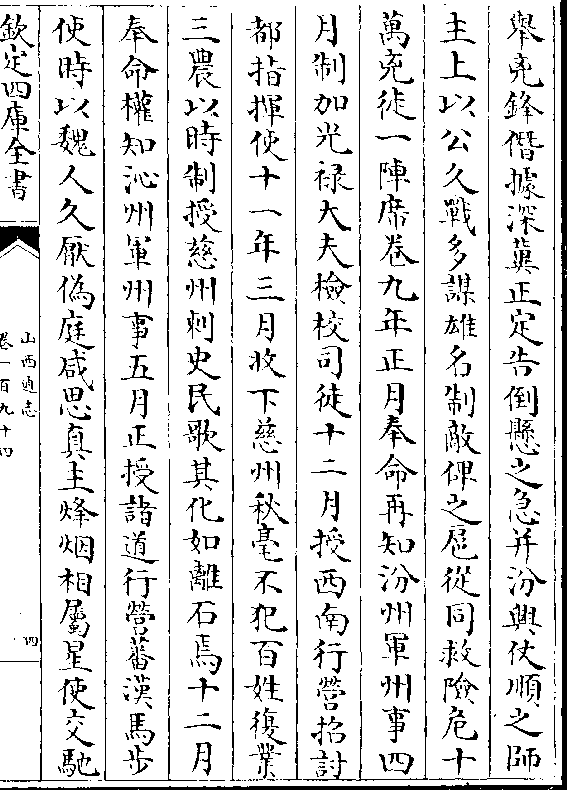 舉兇鋒僭據深冀正定告倒懸之急并汾興仗順之師
主上以公久戰多謀雄名制敵俾之扈從同救險危十
萬兇徒一陣席卷九年正月奉命再知汾州軍州事四
月制加光祿大夫檢校司徒十二月授西南行營招討
都指揮使十一年三月收下慈州秋毫不犯百姓復業
三農以時制授慈州刺史民歌其化如離石焉十二月
奉命權知沁州軍州事五月正授諸道行營蕃漢馬步
使時以魏人久厭偽庭咸思真主烽烟相屬星使交馳
欽定四庫全書
山西通志
卷一百九十四
四